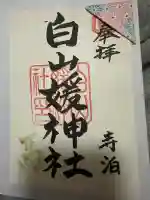 奉拝
白山媛神社
寺泊